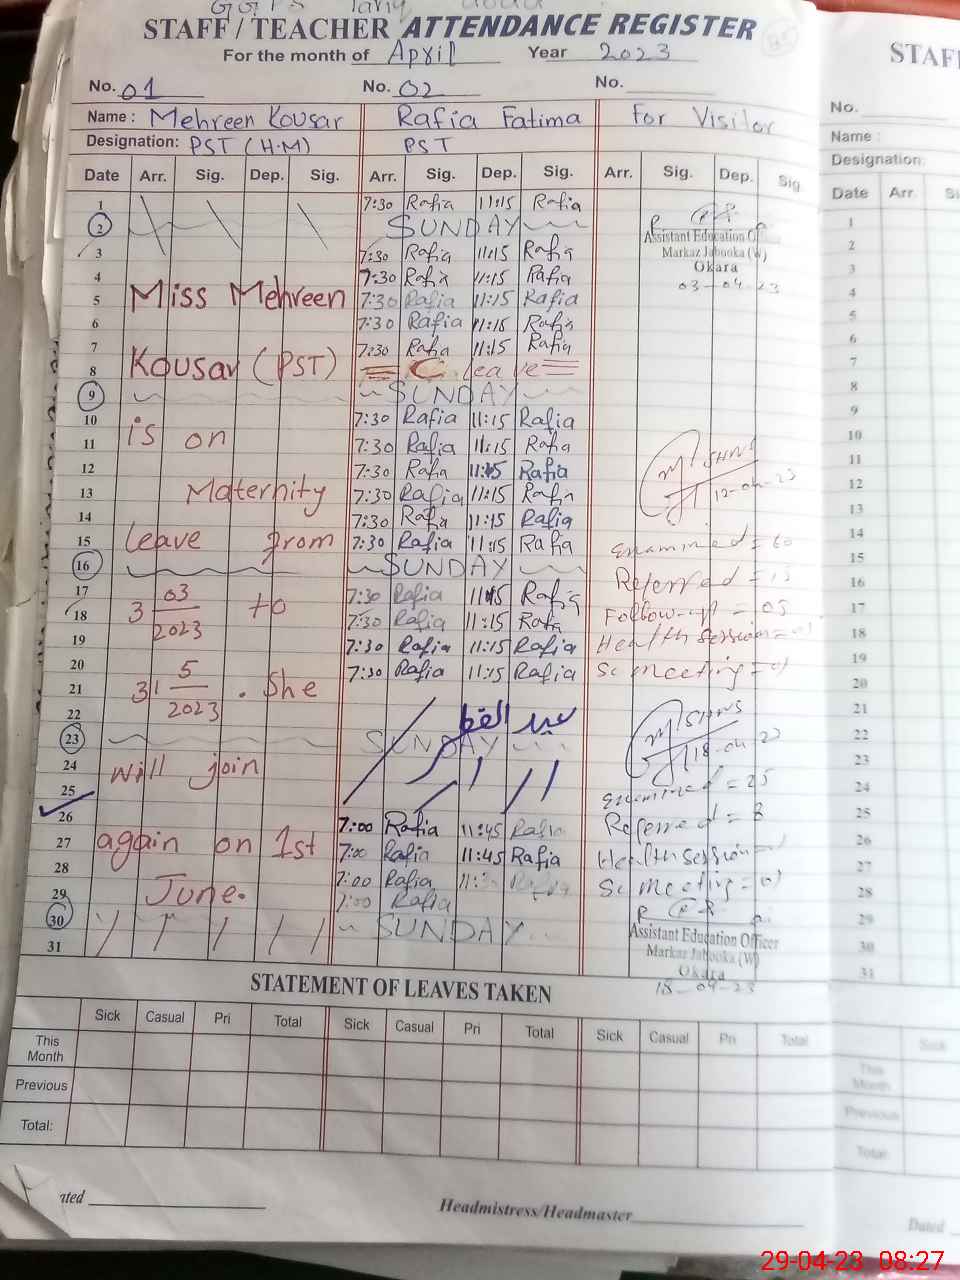 STAFF / TEACHER ATTENDANCE REGISTER
For the month of April Year 2023
No. 01 No. 02 No.
Name : Mehreen Kousar Rafia Fatima For Visitor
Designation: PST (H.M) PST
Date Arr. Sig. Dep. Sig. Arr. Sig. Dep. Sig. Arr. Sig. Dep. Sig
1 7:30 Rafia 11:15 Rafia
2 SUNDAY
Assistant Education
3 7:30 Rafia 11:15 Rafia Markaz Jabooka (W)
Okara
4 7:30 Rafia 11:15 Rafia 03-04-23
5 Miss Mehreen 7:30 Rafia 11:15 Rafia
6 7:30 Rafia 11:15 Rafia
7 7:30 Rafia 11:15 Rafia
8 Kousar (PST) C leave
9 SUNDAY
10 7:30 Rafia 11:15 Rafia
11 is on 7:30 Rafia 11:15 Rafia
12 7:30 Rafia 11:15 Rafia SHNS
13 Maternity 7:30 Rafia 11:15 Rafia 12-04-23
14 7:30 Rafia 11:15 Rafia
15 leave from 7:30 Rafia 11:15 Rafia Examined = 60
16 SUNDAY
17 3 03/2023 to 7:30 Rafia 11:15 Rafia Referred =
18 7:30 Rafia 11:15 Rafia Follow-up = 05
19 7:30 Rafia 11:15 Rafia Health Session = 01
20 7:30 Rafia 11:15 Rafia Sc meeting = 01
21 31 5/2023 . She
22 عید الفطر SHNS
23 SUNDAY 18-04-23
24 will join
25 Examined = 25
26 7:00 Rafia 11:45 Rafia Referred = 8
27 again on 1st 7:00 Rafia 11:45 Rafia Health Session =
28 7:00 Rafia 11: Rafia Sc meeting = 01
29 June. 7:00 Rafia
30 SUNDAY Assistant Education Officer
31 Markaz Jabooka (W)
Okara
18-04-23
STATEMENT OF LEAVES TAKEN
Sick Casual Pri Total Sick Casual Pri Total Sick Casual Pri Total
This Month
Previous
Total:
Headmistress/Headmaster
STAF
No.
Name :
Designation:
Date Arr.
1
2
3
4
5
6
7
8
9
10
11
12
13
14
15
16
17
18
19
20
21
22
23
24
25
26
27
28
29
30
31
Sick
This Month
Previous
Total
Dated
29-04-23 08:27